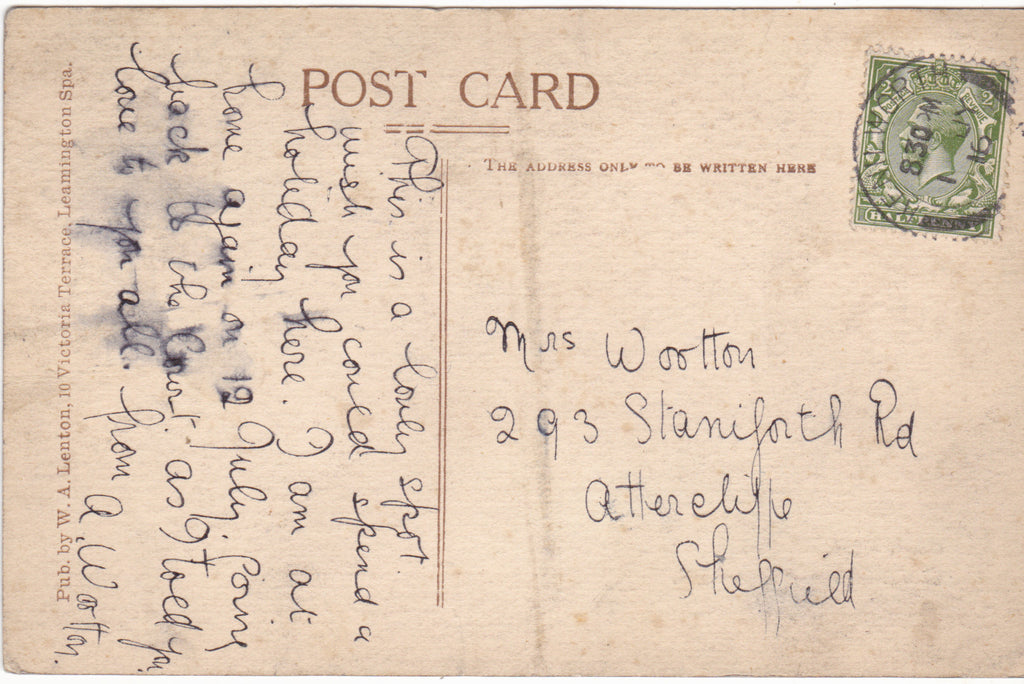 POST CARD
THE ADDRESS ONLY TO BE WRITTEN HERE
This is a lovely spot.
wish you could spend a
holiday here. I am at
home again on 12 July. Going
back to the Court. as I told you
love to you all. from A. Wootton.
Mrs Wootton
293 Staniforth Rd
Attercliffe
Sheffield
Pub. by W. A. Lenton, 10 Victoria Terrace, Leamington Spa.
8.30 PM
1
16
HALFPENNY